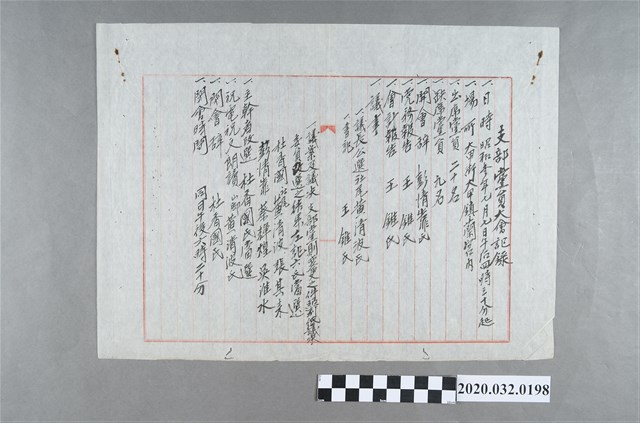 支部黨員大會記錄
一、日時 昭和 年九月七日午后四時三十分起
一、場所 大甲街大甲鎮蘭宮內
一、出席黨員 二十名
一、缺席黨員 九名
一、開會辭 彭清靠氏
一、党務報告 王錐氏
一、會計報告 王錐氏
一、議事
一、議長公選 社 黃清波氏
一、書記 王錐氏
一、議案及議決 支部黨則變更之件
委員改選之結果 左記六氏當選
杜香國 黃清波 張其來
彭清靠 蔡 煌 吳淮水
一、主幹者改選 杜香國氏當選
一、祝電祝文朗讀 黃清波氏
一、閉會辭 杜香國氏
一、閉會時間 同日午後六時二十分
2020.032.0198